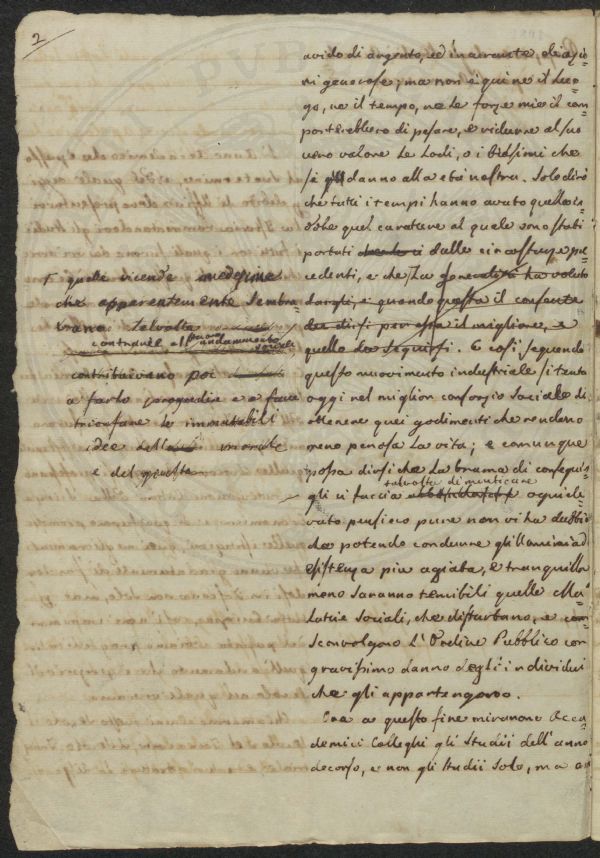 2
avido di argento, ed incurante di azio=
ni generose; ma non è qui ne il luo=
go, ne il tempo, ne le forze mie il com
porterebbero di pesare, e ridurre al suo
vero valore le lodi, o i biasimi che
si danno alla età nostra. Solo dirò
che tutti i tempi hanno avuto quello
quel carattere al quale sono stati
portati dalle circostanze pre
cedenti, e che la generalità ha voluto
dargli, e quando questa il consente
dee dirsi per essa il migliore, e
quello da seguirsi. E così seguendo
questo movimento industriale si tenta
oggi nel miglior consorzio sociale di
ottenere quei godimenti che rendono
meno penosa la vita; e comunque
possa dirsi che la brama di consegui=
gli ci faccia talvolta dimenticare ogni ele
vato pensiero pure non vi ha dubbio
che potendo condurre gli uomini ad
esistenza più agiata, e tranquilla
meno saranno temibili quelle Ma=
lattie Sociali, che disturbano, e
sconvolgono l'Ordine Pubblico con
gravissimo danno degli individui
che gli appartengono.
Ora a questo fine mirarono Acca
demici Colleghi gli Studii dell'anno
decorso, e non gli studii solo, ma
quelle vicende medesime
che apparentemente sembra
vano talvolta
contrarie al buono andamento
sociale
contribuivano poi
a farlo progredire e a fare
trionfare le immutabili
idee della morale
e del giusto